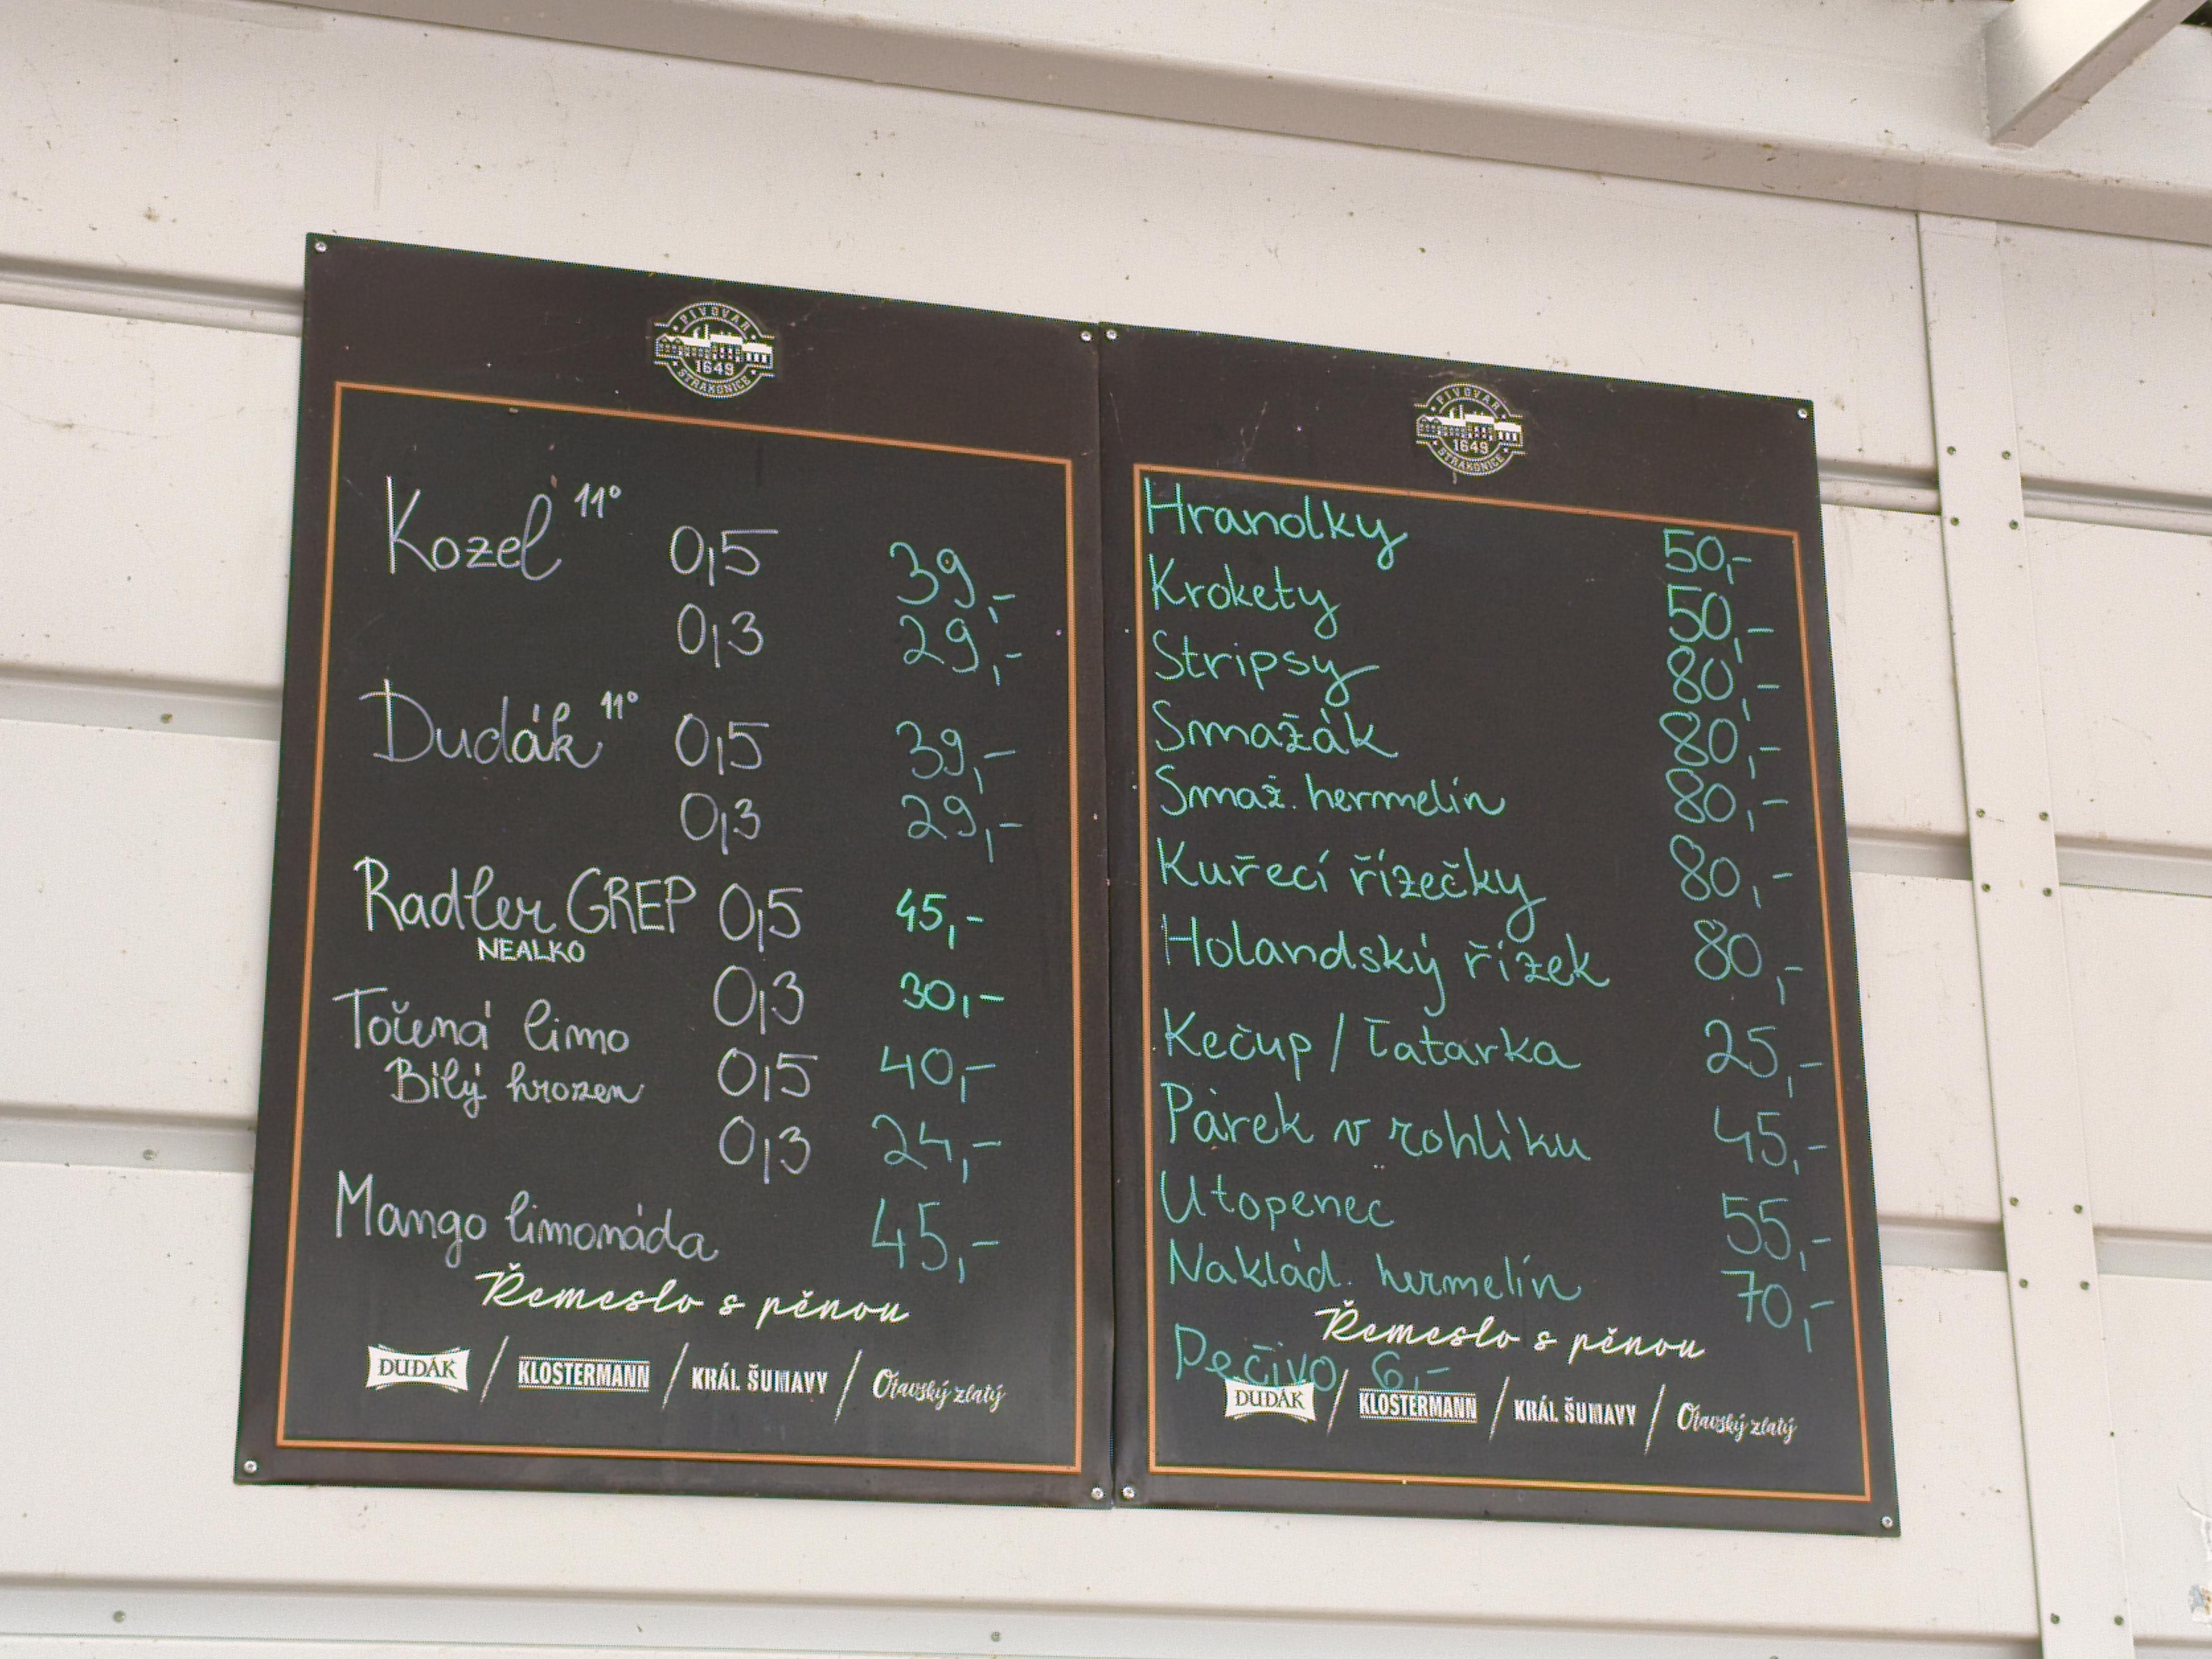 PIVOVAR
1649
STRAKONICE
Kozel 11° 0,5 39,-
0,3 29,-
Dudák 11° 0,5 39,-
0,3 29,-
Radler GREP 0,5 45,-
NEALKO
0,3 30,-
Točená limo
Bílý hrozen 0,5 40,-
0,3 24,-
Mango limonáda 45,-
Řemeslo s pěnou
DUDÁK / KLOSTERMANN / KRÁL ŠUMAVY / Otavský zlatý
PIVOVAR
1649
STRAKONICE
Hranolky 50,-
Krokety 50,-
Stripsy 80,-
Smažák 80,-
Smaž. hermelín 80,-
Kuřecí řízečky 80,-
Holandský řízek 80,-
Kečup / Tatarka 25,-
Párek v rohlíku 45,-
Utopenec 55,-
Naklád. hermelín 70,-
Řemeslo s pěnou
Pečivo 6,-
DUDÁK / KLOSTERMANN / KRÁL ŠUMAVY / Otavský zlatý